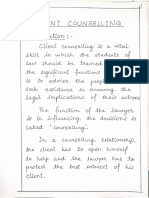 NT COUNSELLING
ction :-
Client counselling is a vital
skill in which the students of
law should be trained
the significant functions
is to advise the people
seek assistance in knowing the
legal implications of their actions
The function of the lawyer
is in influencing the decisions is
called "counselling".
In a counselling relationship,
the client has to open himself
to help and the lawyer has to
protect the best interest of his
client.